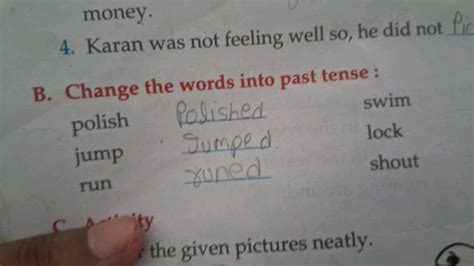 money.
4. Karan was not feeling well so, he did not Pic
B. Change the words into past tense :
polish Polished swim
jump Jumped lock
run runed shout
C. Activity
the given pictures neatly.